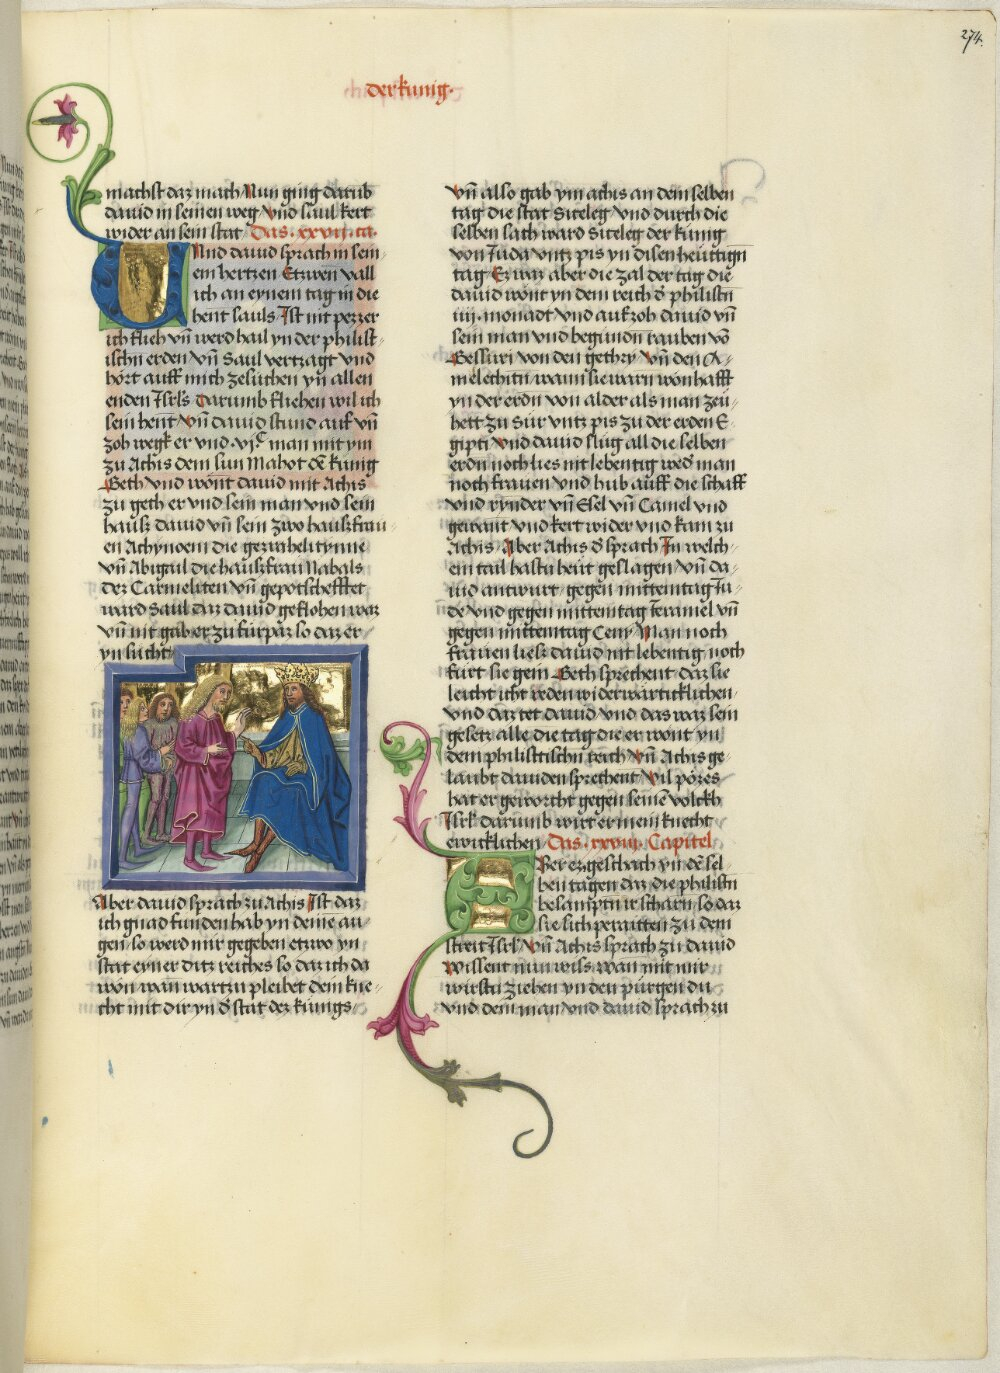 274.
der kunig.
machst daz mach Nun ging darub
dauid in seinen weg Vnd saul kert
wider an sein stat Das .xxvij. ca.
Und dauid sprach in sein
em hertzen Etzwen vall
ich an eynem tag in die
hent sauls Ist nit pezzer
ich flieh vn̄ werd hail yn der philist
ischn erden vn̄ Saul vertzagt vnd
hört auff mich zesuchen yn allen
enden Isrls darumb fliehen wil ich
sein hent Vn̄ dauid stund auf vn̄
zoh wegk er vnd .vjc. man mit ym
zu Achis dem sun Mahot dē kunig
Geth vnd wont dauid mit Achis
zu geth er vnd sein man vnd sein
hausz dauid vn̄ sein zwo hauszfrau
en Achynoem die gezrahelitynne
vn̄ Abigail die hauszfrau Nabals
dez Carmeliten vn̄ gepotschefftet
ward Saul daz dauid geflohen waz
vn̄ nit gab er zu furpaz so daz er
yn sucht
Aber dauid sprach zu Achis Ist daz
ich gnad funden hab yn deine au
gen so werd mir gegeben etwo yn
stat eyner ditz reiches so daz ich da
won wan warzu pleibet dein kne
cht mit dir yn d̄ stat dez kunigs
Vn̄ also gab ym achis an dem selben
tag die stat Siteleg vnd durch die
selben sach ward Siteleg der kunig
von Juda vntz pis yn disen heuttign
tag Ez waz aber die zal der tag die
dauid wont yn dem reich d̄ philistn̄
iiij. monadt vnd auf zoh dauid vn̄
sein man vnd begundn̄ rauben vō
Gessuri von den gethzy vn̄ den A
melechitn̄ wann sie warn wonhafft
yn der erdn̄ von alder als man zeu
hett zu Sur vntz pis zu der erden E
gipti vnd dauid slug all die selben
erdn̄ noch lies nit lebentig wed̄ man
noch frauen vnd hub auff die schaff
vnd rynder vn̄ Esel vn̄ Camel vnd
gewant vnd kert wider vnd kam zu
Achis Aber Achis d̄ sprach In welch
em tail hastu heut geslagen vn̄ da
uid antwurt gegen mittentag Ju
de vnd gegen mittentag Jeramel vn̄
gegen mittentag Ceny Man noch
frauen liesz dauid nit lebentig noch
furt sie gein Geth sprechent daz sie
leicht icht reden widerwartticklichen
vnd daz tet dauid vnd das waz sein
gesetz alle die tag die er wont yn
dem philistischn̄ reich Vn̄ Achis ge
laubt dauiden sprechent Vil pözes
hat er geworcht gegen seinē volckh
Isrl darumb wirt er mein knecht
ewicklichen Das .xxviij. Capitel
Aber ez geschach yn dē sel
ben tagen daz die philistn̄
besamptn̄ ir scharn so daz
sie sich peraitten zu dem
streit Isrl Vn̄ Achis sprach zu dauid
Wissent nun wils wan mit mir
wirstu ziehen yn den purgen du
vnd dein man vnd dauid sprach zu